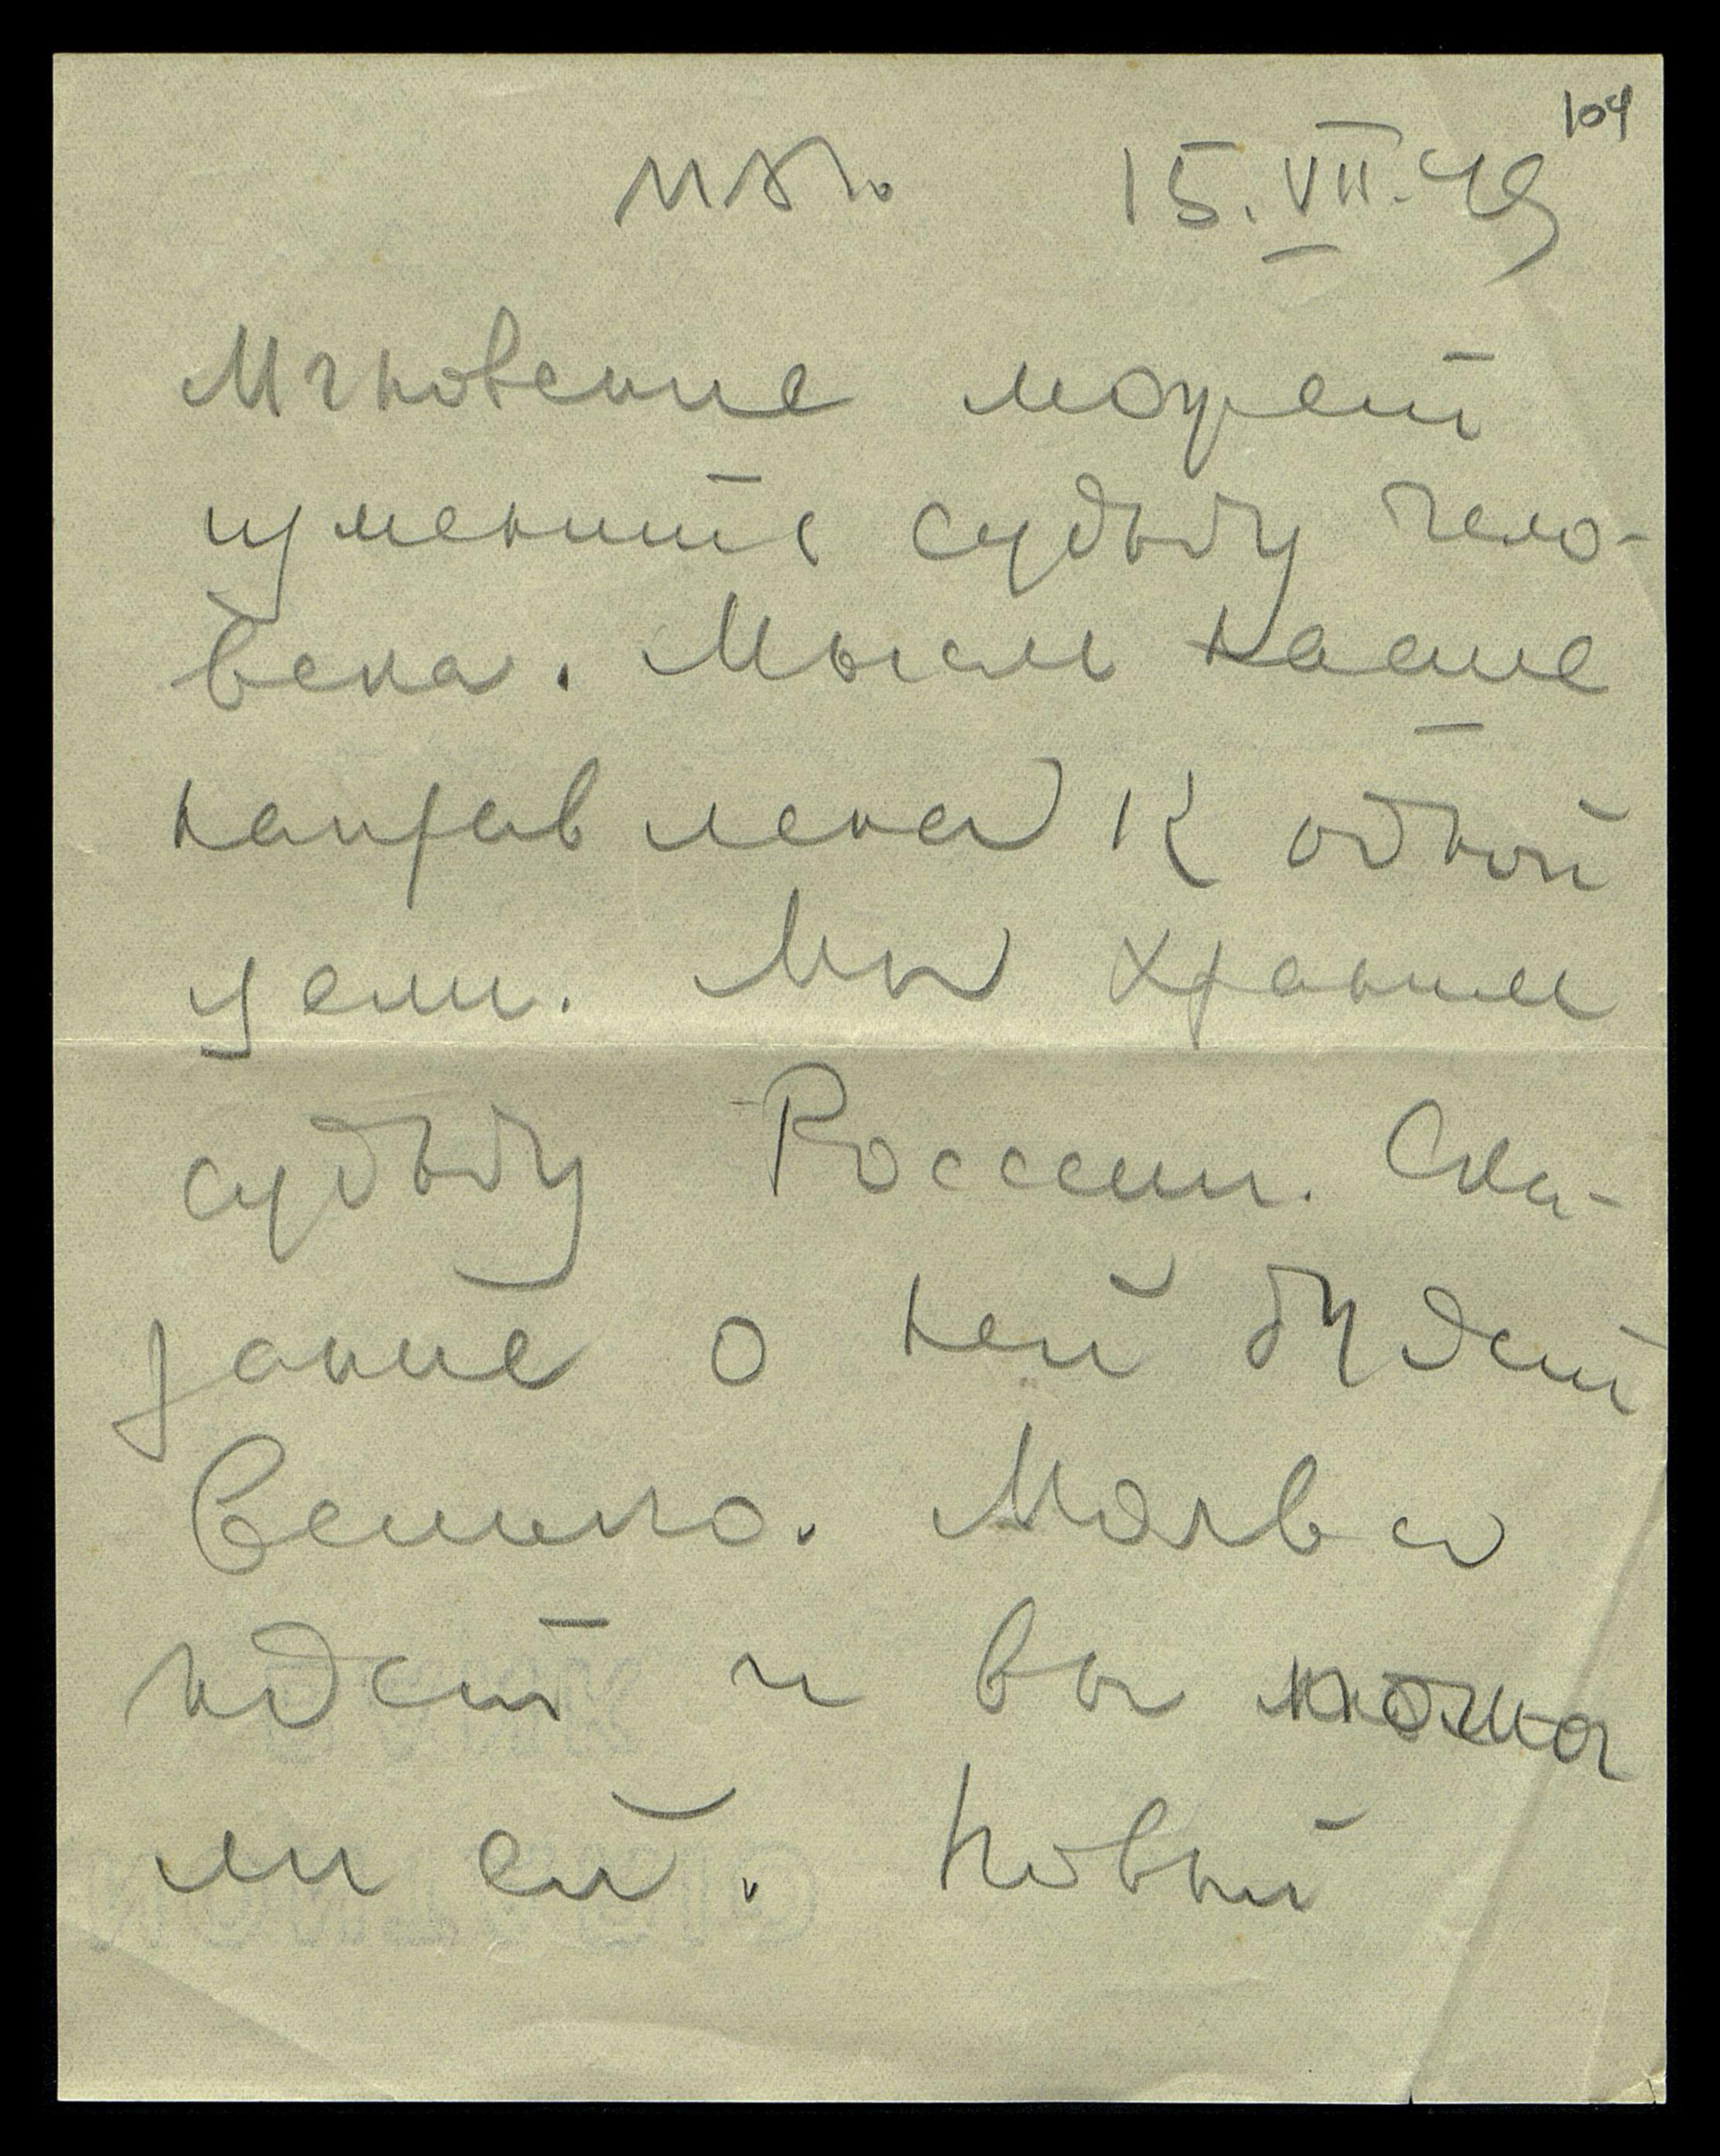 104
15.VII.49
Мгновение может
изменить судьбу чело-
века. Мысль наша
направлена к одной
цели. Мы храним
судьбу России. Ска-
зание о ней будет
велико. Молва
идет и вы
ли ей. Новый